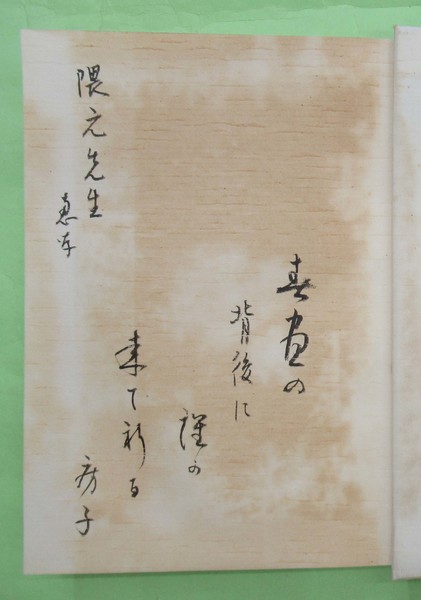 春昼の
背後に
誰か
来て祈る
房子
隈元先生
恵存